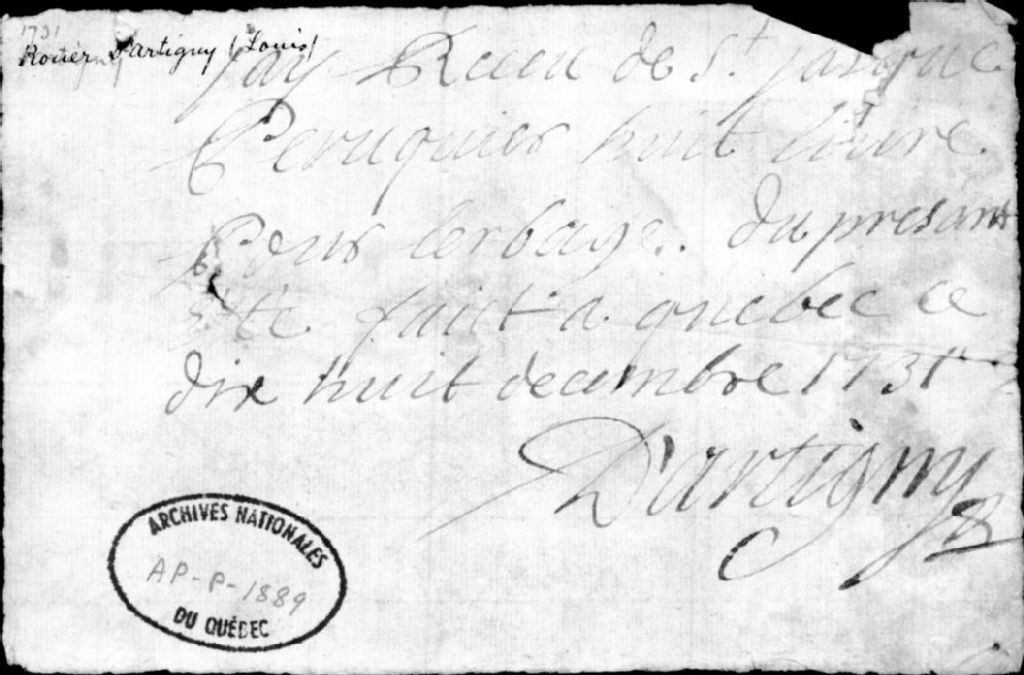 1731
Rouer D'artigny (Louis)
Jay Receu de St. Jacque
Peruquier huit livre
Pour lerbage. du presant
Ete fait a quebec ce
dix huit decembre 1731
D'artigny
ARCHIVES NATIONALES
AP-P-1889
DU QUÉBEC